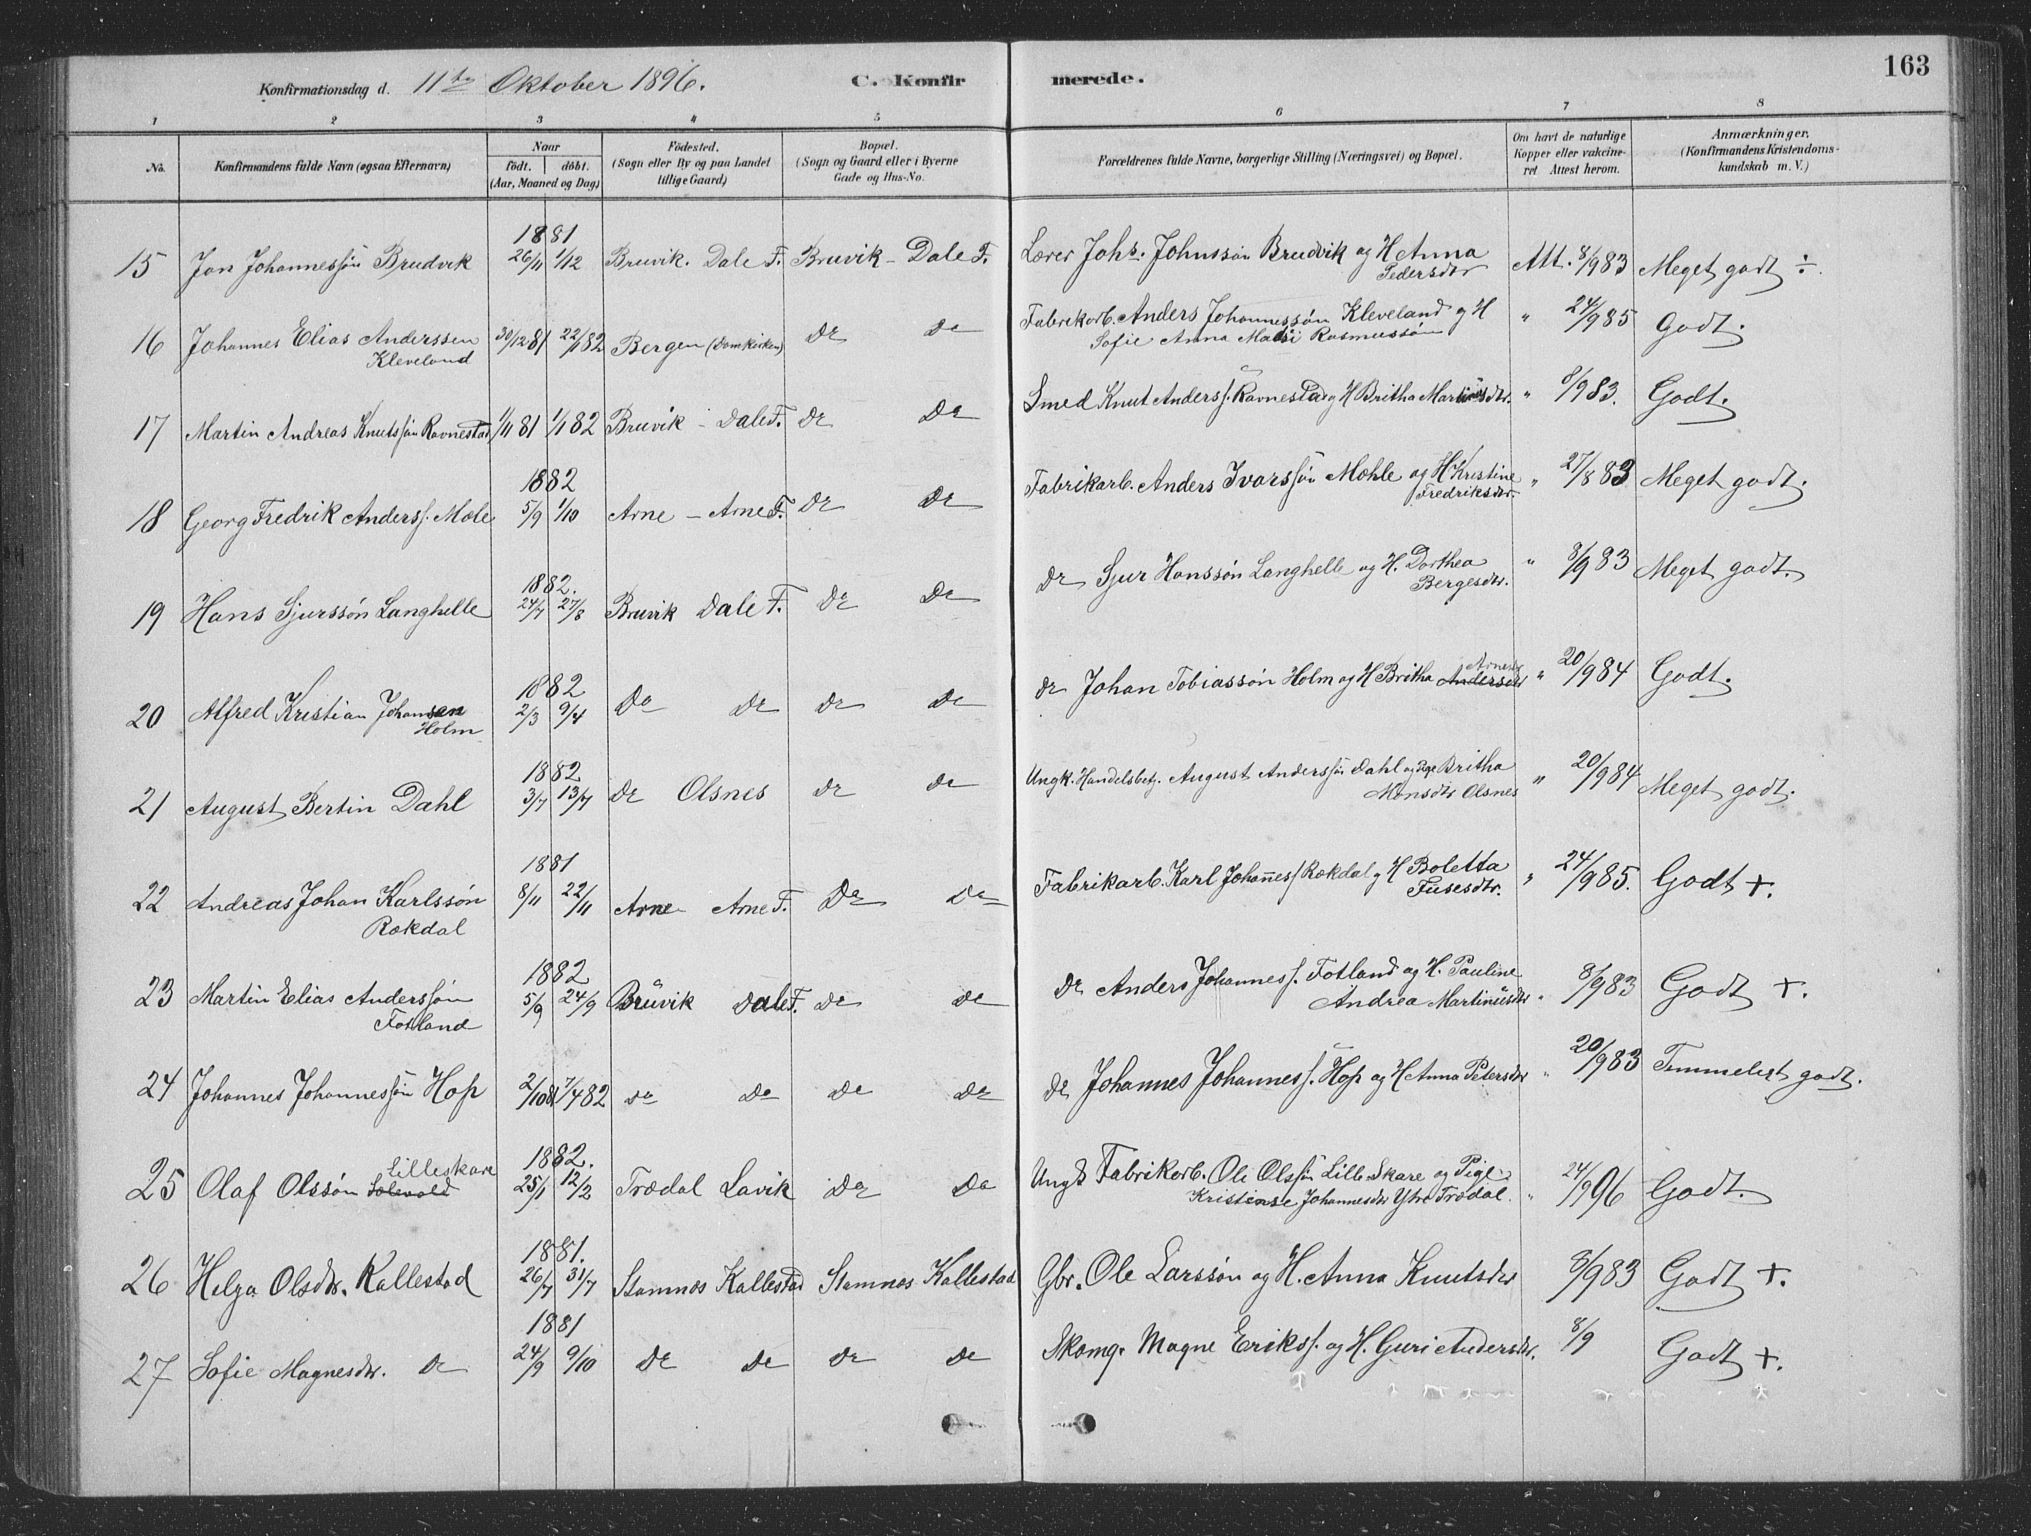 163
Konfirmationsdag d. 11te Oktober 1896. C. Konfirmerede.
1 2 3 4 5 6 7 8
No. Konfirmandens fulde Navn (ogsaa Efternavn) Naar födt. döbt. (Aar, Maaned og Dag) Födested. (Sogn eller By og paa Landet tillige Gaard) Bopæl. (Sogn og Gaard eller i Byerne Gade og Hus-No. Forældrenes fulde Navne, borgerlige Stilling (Næringsvei) og Bopæl. Om havt de naturlige Kopper eller vakcineret Attest herom. Anmærkninger. (Konfirmandens Kristendomskundskab m. V.)
1881
15 Jon Johannessøn Brudvik 26/11 1/12 Bruvik. Dale F. Bruvik - Dale F. Lærer Johs. Johnssøn Brudvik og H Anna Att. 8/9 83 Meget godt ÷.
Pedersdtr
16 Johannes Elias Anderssen 30/12 81 22/1 82 Bergen (Domkirken) do do Fabrikarb. Anders Johannessøn Kleveland og H " 24/9 85 Godt.
Kleveland Sofie Anna Rasmussøn
17 Martin Andreas Knutssøn Ravnestad 1/11 81 1/1 82 Bruvik - Dale F. do do Smed Knut Anderss. Ravnestad og H Britha Martinusdtr. " 8/9 83. Godt.
1882
18 Georg Fredrik Anderss. Mæle 5/9 1/10 Arne - Arne F. do do Fabrikarb. Anders Ivarssøn Mæhle og H Kristine " 27/8 83 Meget godt.
Fredriksdtr.
1882.
19 Hans Sjurssøn Langhelle 24/7 27/8 Bruvik Dale F. do do do Sjur Hanssøn Langhelle og H. Dorthea " 8/9 83 Meget godt.
Bergesdtr.
1882
20 Alfred Kristian Johansen 2/3 9/4 do do do do do Johan Tobiassøn Holm og H Britha Andersdtr " 20/9 84 Godt.
Holm
1882
21 August Bertin Dahl 3/7 13/7 do Olsnes do do Ungk. Handelsbetj. August Anderssøn Dahl og Pige Britha " 20/9 84 Meget godt.
Monsdtr Olsnes
1881
22 Andreas Johan Karlssøn 8/11 22/11 Arne Arne F. do do Fabrikarb. Karl Johanness. Røkdal og H Boletta " 24/9 85. Godt +.
Røkdal Fusesdtr.
1882
23 Martin Elias Anderssøn 5/9 24/9 Bruvik Dale F. do do do Anders Johanness. Fotland og H. Pauline 8/9 83 Godt +.
Fotland Andrea Martinusdtr "
24 Johannes Johannessøn Hop 2/10 81 7/4 82 do do do do do Johannes Johanness. Hop og H Anna Petersdtr " 20/9 83 Temmeligt godt.
Lilleskare 1882.
25 Olaf Olssøn Solevold 25/1 12/2 Trædal Lavik do do Ungk Fabrikarb. Ole Olssøn Lille Skare og Pige 24/9 96 Godt.
Kristense Johannesdtr Ytre Trædal. "
1881.
26 Helga Olsdtr. Kallestad 26/7 31/7 Stamnæs Kallestad Stamnæs Kallestad Gbr. Ole Larssøn og H. Anna Knutsdtr 8/9 83 Godt +.
1881
27 Sofie Magnesdtr. do 24/9 9/10 do do do do Skomg. Magne Erikss. og H. Guri Andersdtr. 8/9 Godt +.